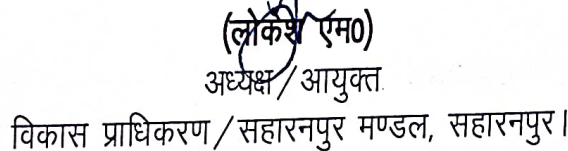 (लोकेश एम0)
अध्यक्ष / आयुक्त
विकास प्राधिकरण / सहारनपुर मण्डल, सहारनपुर।